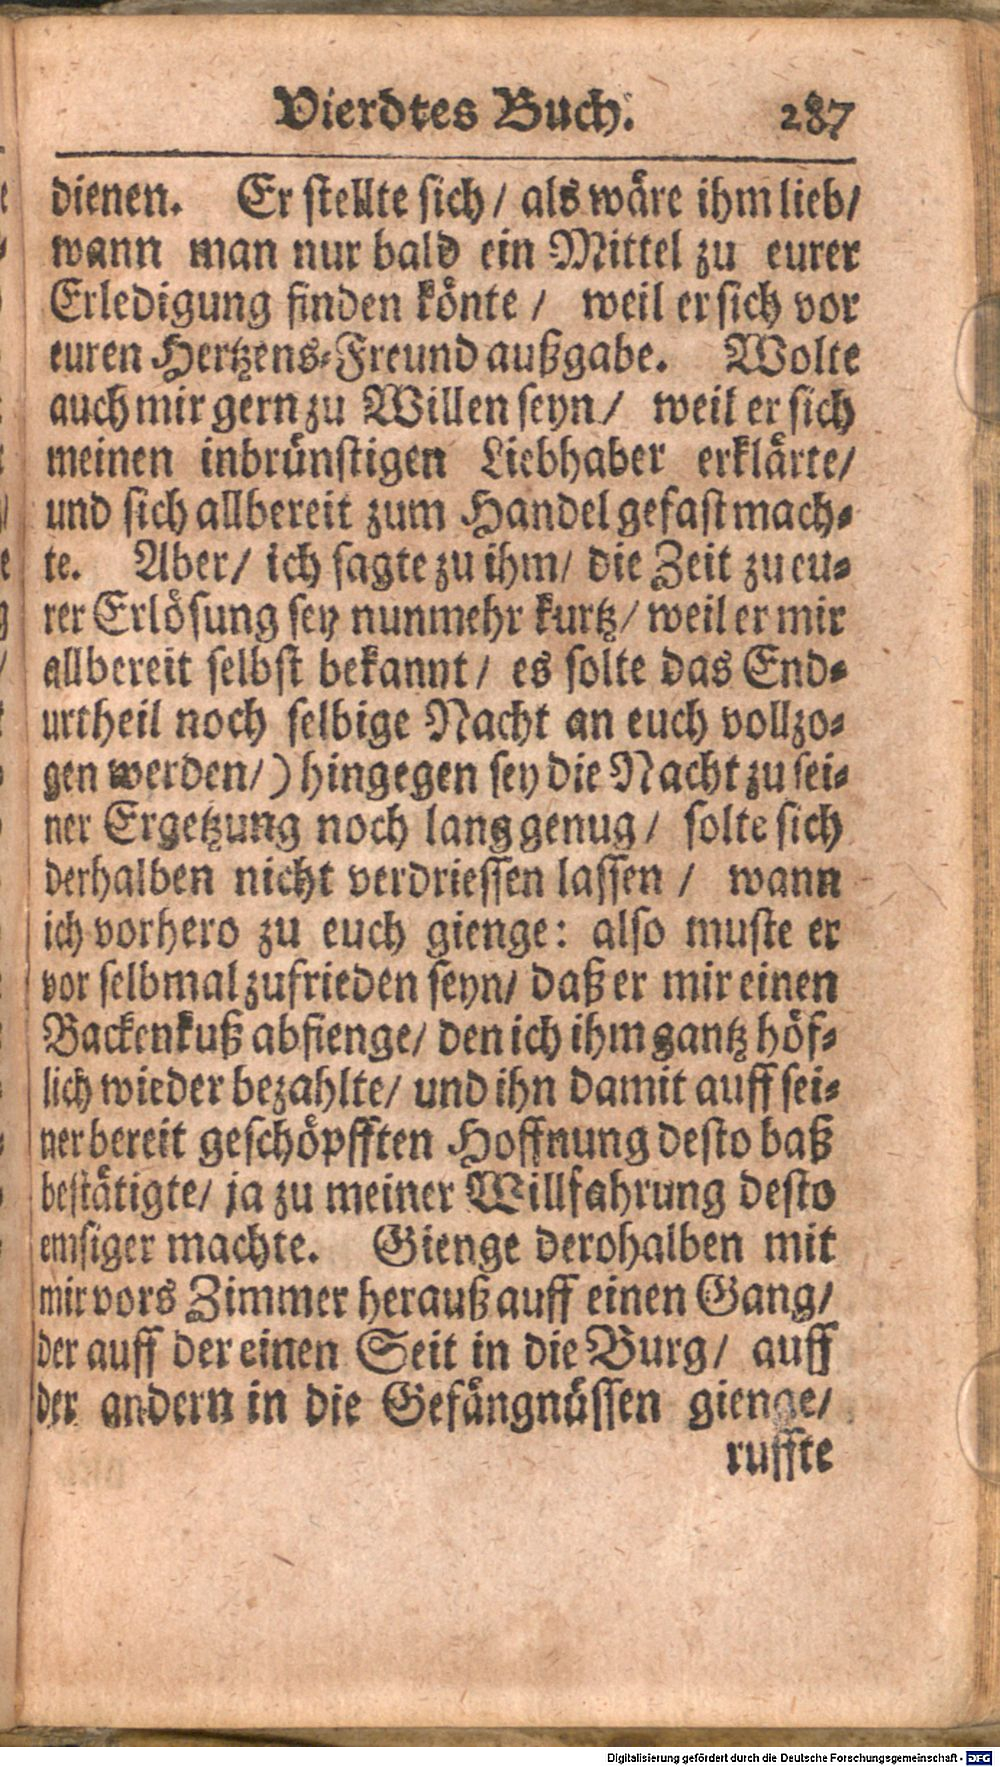 Vierdtes Buch. 287
dienen. Er stellte sich / als wäre ihm lieb /
wann man nur bald ein Mittel zu eurer
Erledigung finden könte / weil er sich vor
euren Hertzens-Freund außgabe. Wolte
auch mir gern zu Willen seyn / weil er sich
meinen inbrünstigen Liebhaber erklärte /
und sich allbereit zum Handel gefast mach-
te. Aber / ich sagte zu ihm / die Zeit zu eu-
rer Erlösung sey nunmehr kurtz / weil er mir
allbereit selbst bekannt / es solte das End-
urtheil noch selbige Nacht an euch vollzo-
gen werden /) hingegen sey die Nacht zu sei-
ner Ergetzung noch lang genug / solte sich
derhalben nicht verdriessen lassen / wann
ich vorhero zu euch gienge: also muste er
vor selbmal zufrieden seyn / daß er mir einen
Backenkuß abfienge / den ich ihm gantz höf-
lich wieder bezahlte / und ihn damit auff sei-
ner bereit geschöpfften Hoffnung desto baß
bestätigte / ja zu meiner Willfahrung desto
emsiger machte. Gienge derohalben mit
mir vors Zimmer herauß auff einen Gang /
der auff der einen Seit in die Burg / auff
der andern in die Gefängnüssen gienge /
ruffte
Digitalisierung gefördert durch die Deutsche Forschungsgemeinschaft - DFG